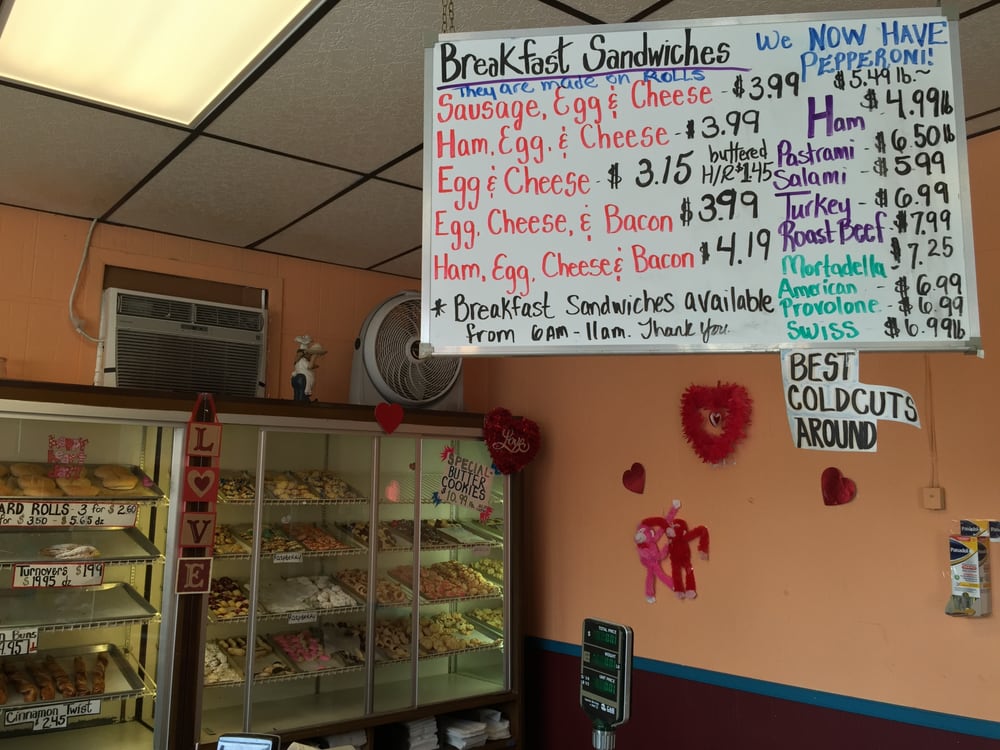 Breakfast Sandwiches
They are made on Rolls
Sausage, Egg & Cheese - $3.99
Ham, Egg, & Cheese - $3.99
Egg & Cheese - $3.15
buttered
H/R $1.45
Egg, Cheese, & Bacon $3.99
Ham, Egg, Cheese & Bacon $4.19
* Breakfast Sandwiches available
from 6AM - 11am. Thank you
We NOW HAVE
PEPPERONI!
$5.49 lb~
Ham $4.99lb
Pastrami - $6.50lb
Salami - $5.99
Turkey - $6.99
Roast Beef - $7.99
Mortadella - $7.25
American - $6.99
Provolone - $6.99
Swiss $6.99lb
BEST
COLDCUTS
AROUND
LOVE
Love
SPECIAL
BUTTER
COOKIES
$10.99 lb
ARD ROLLS - 3 for $2.60
for $3.50 - $5.65 dz
Turnovers $1.99
$19.95 dz
n Buns
9.95
Cinnamon Twist
$2.45
Raspberry
Raspberry
TOTAL PRICE
WEIGHT
UNIT PRICE
Panadol